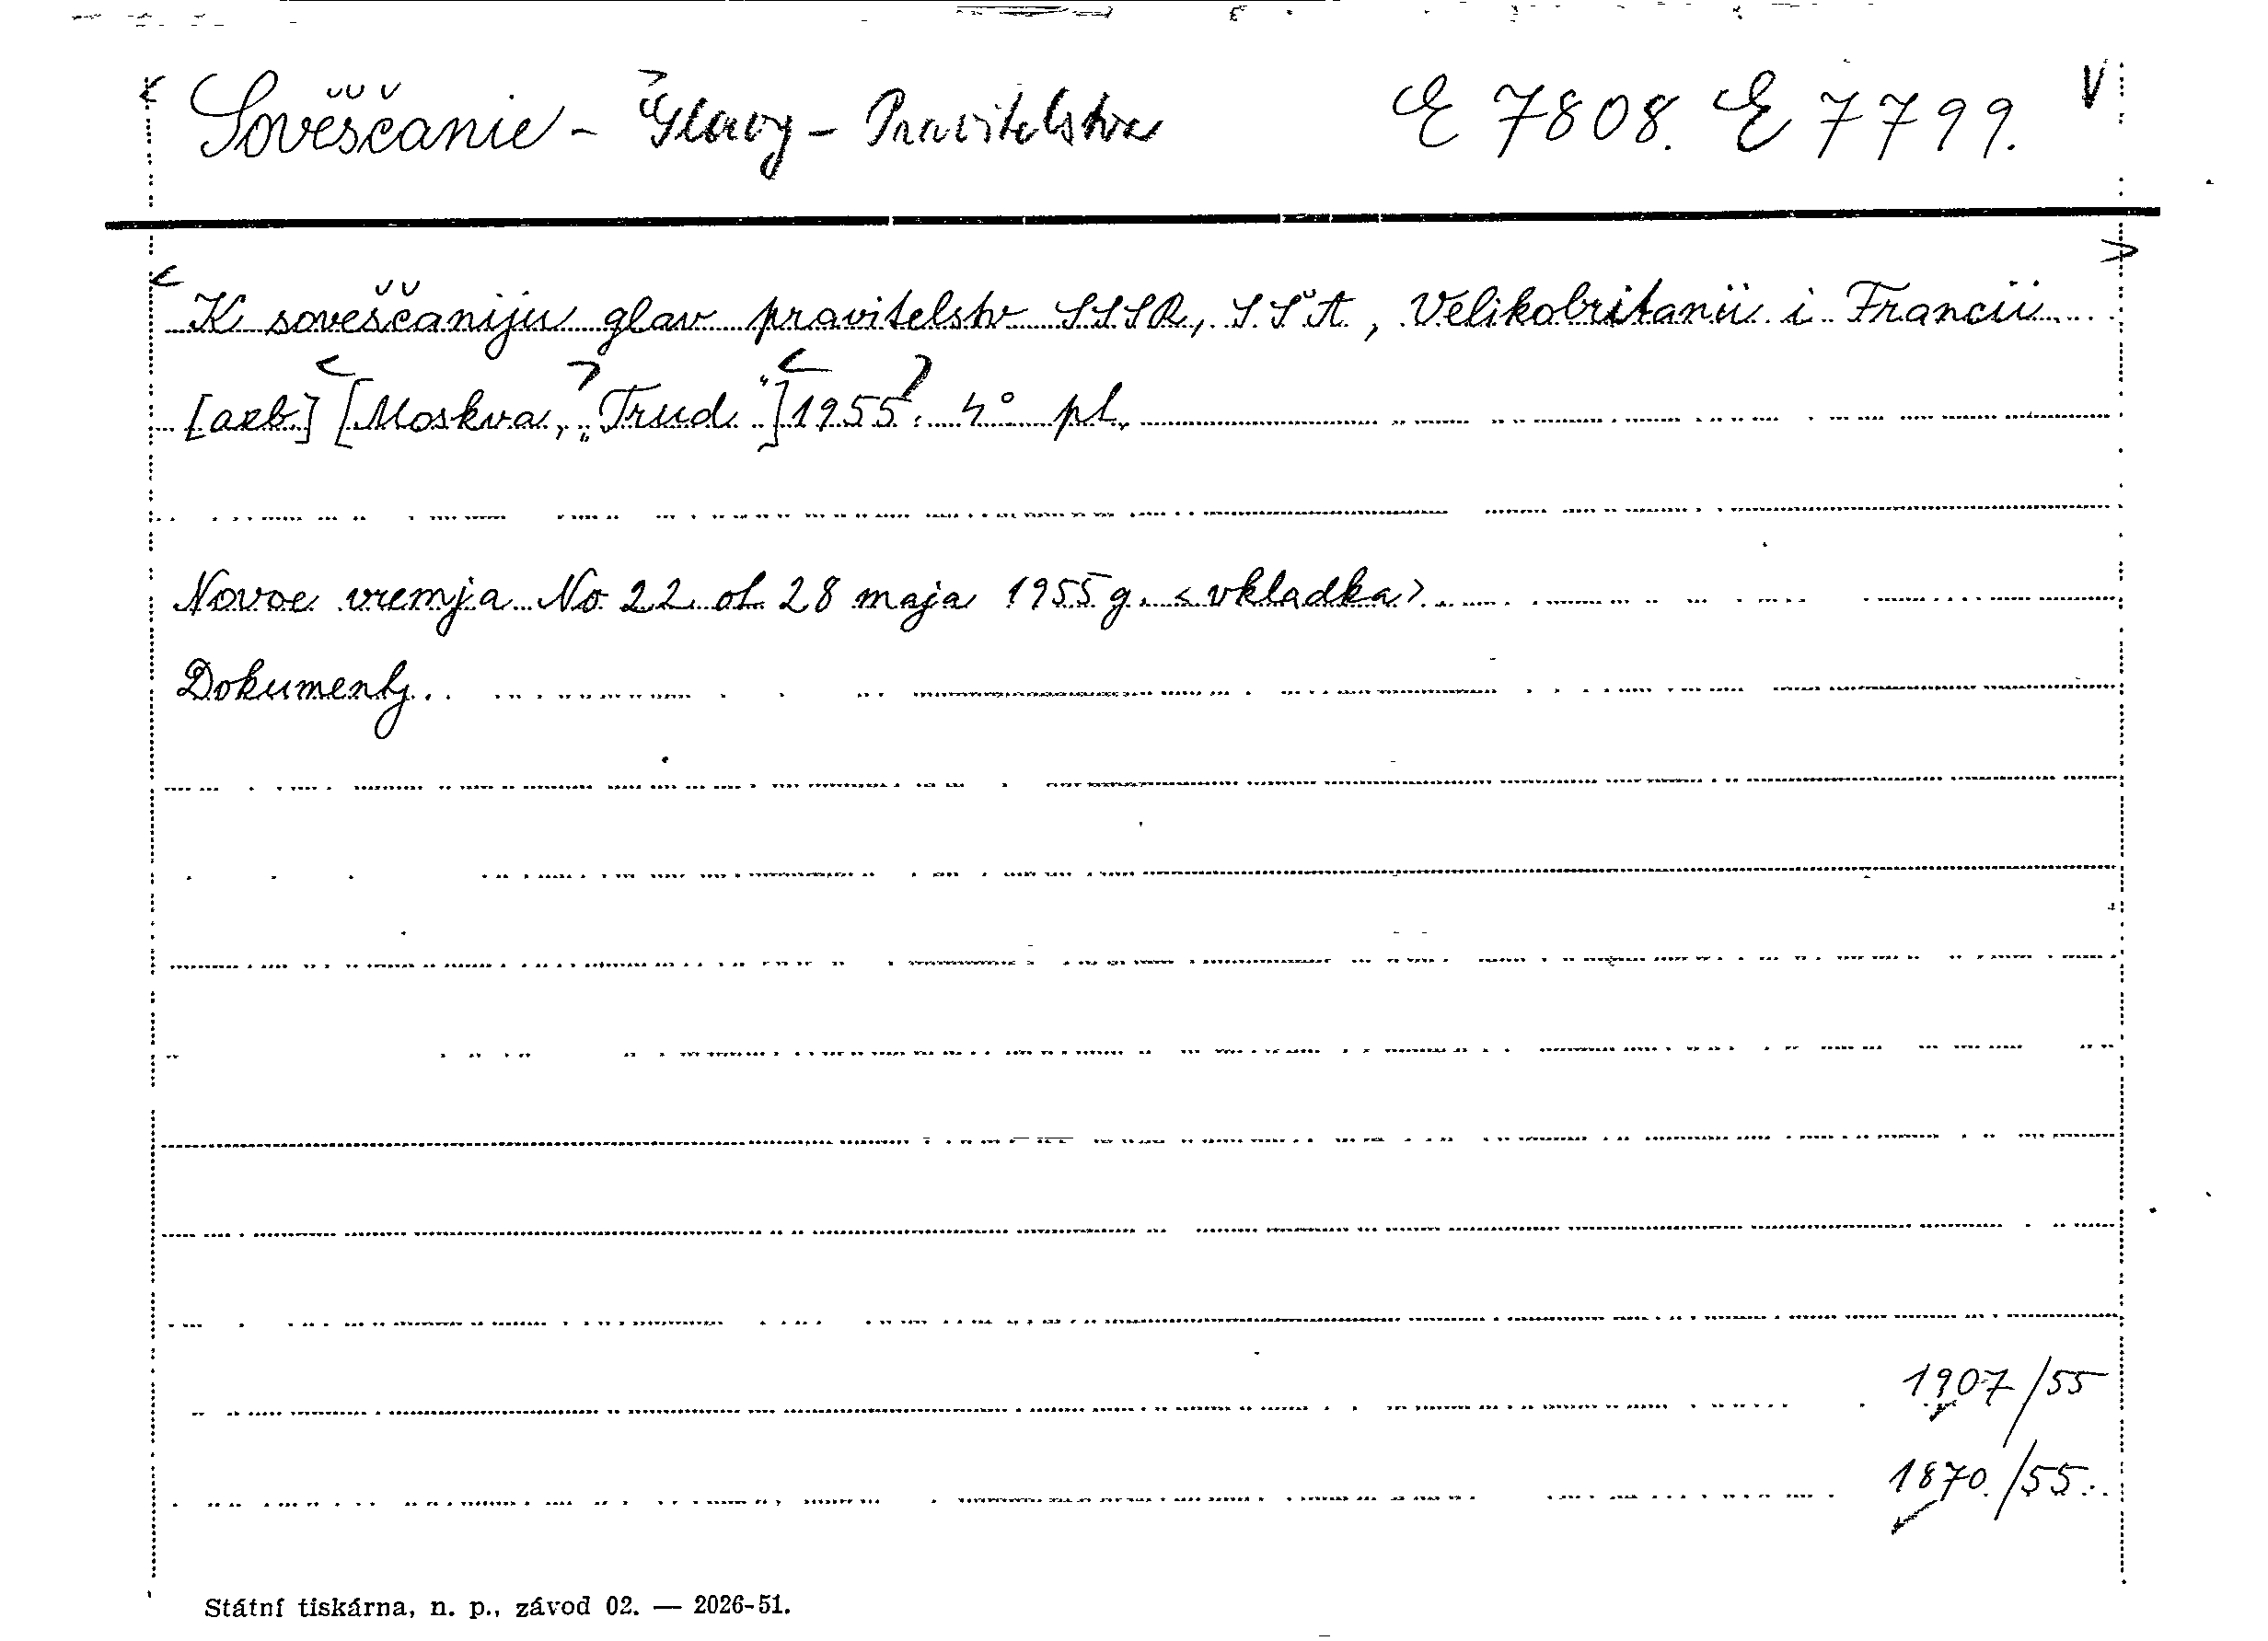 Soveščanie - Glavy - Pravitelstva E 7808. E 7799.
K soveščaniju glav pravitelstv SSSR, SŠA, Velikobritanii i Francii.
[azb.] [Moskva, „Trud"] 1955. 4° pl.
Novoe vremja No 22 ot 28 maja 1955 g. <vkladka>
Dokumenty.
1907/55
1870/55.
Státní tiskárna, n. p., závod 02. — 2026-51.